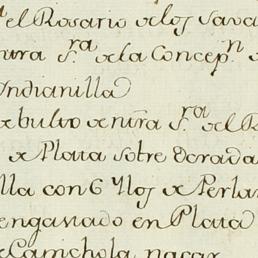 el Rosario de los Sava
ura S.ra de la Concep.n
Indianilla
de bulto de ntra S.ra del
de Plata sobre Dorada
lla con 6 Ylos de Perla
engastado en Plata
Concha nacar